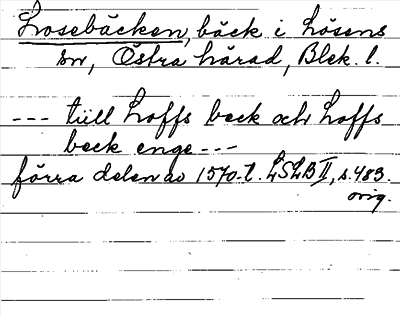 Losebäcken, bäck i Lösens
sn, Östra härad, Blek. l.
--- tiill Loffs beck och Loffs
beck enge ---
förra delen av 1570-t. LSLB II, s. 483.
orig.